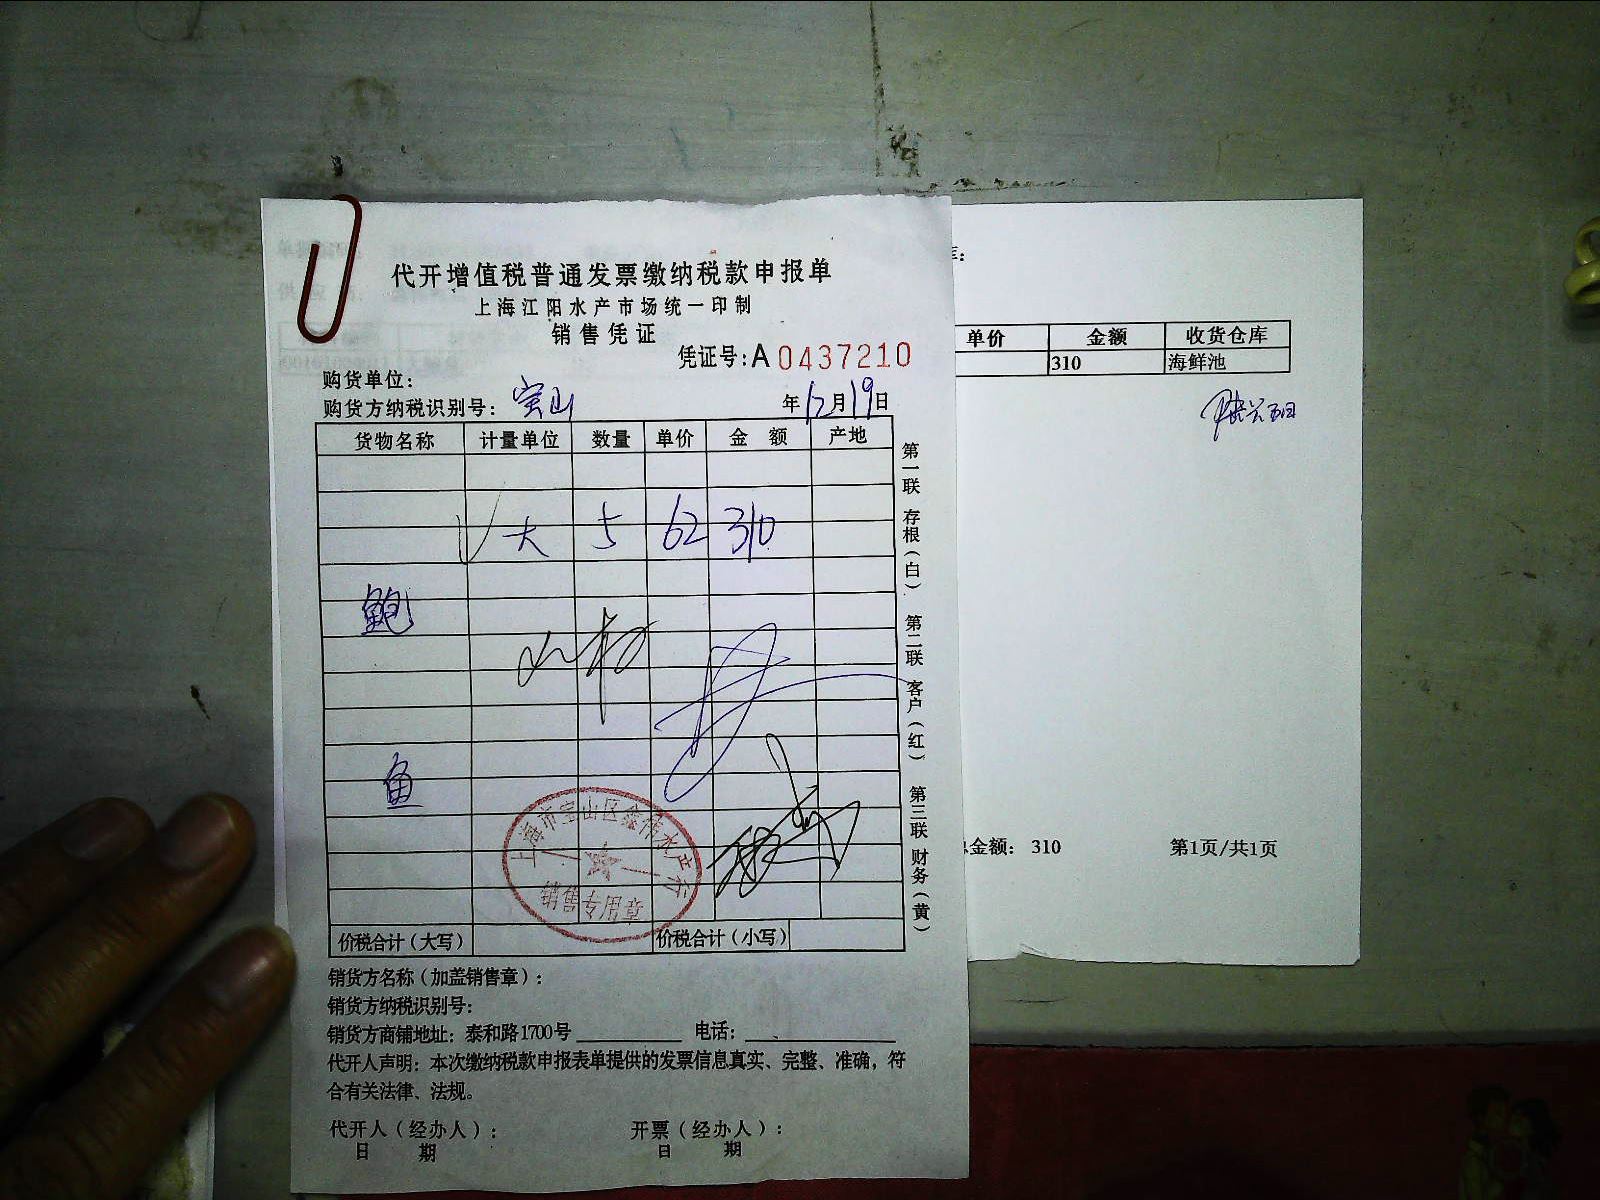 代开增值税普通发票缴纳税款申报单
上海江阳水产市场统一印制
销售凭证
凭证号:A 0437210
购货单位:
购货方纳税识别号: 宝山 年12月19日
货物名称 计量单位 数量 单价 金额 产地
大 5 62 310
鲍
鱼
价税合计(大写) 价税合计(小写)
上海市宝山区鑫伟水产行
销售专用章
第一联 存根(白) 第二联 客户(红) 第三联 财务(黄)
销货方名称(加盖销售章):
销货方纳税识别号:
销货方商铺地址: 泰和路1700号 电话:
代开人声明: 本次缴纳税款申报表单提供的发票信息真实、完整、准确，符
合有关法律、法规。
代开人(经办人): 开票(经办人):
日 期 日 期
单价 金额 收货仓库
310 海鲜池
总金额: 310 第1页/共1页